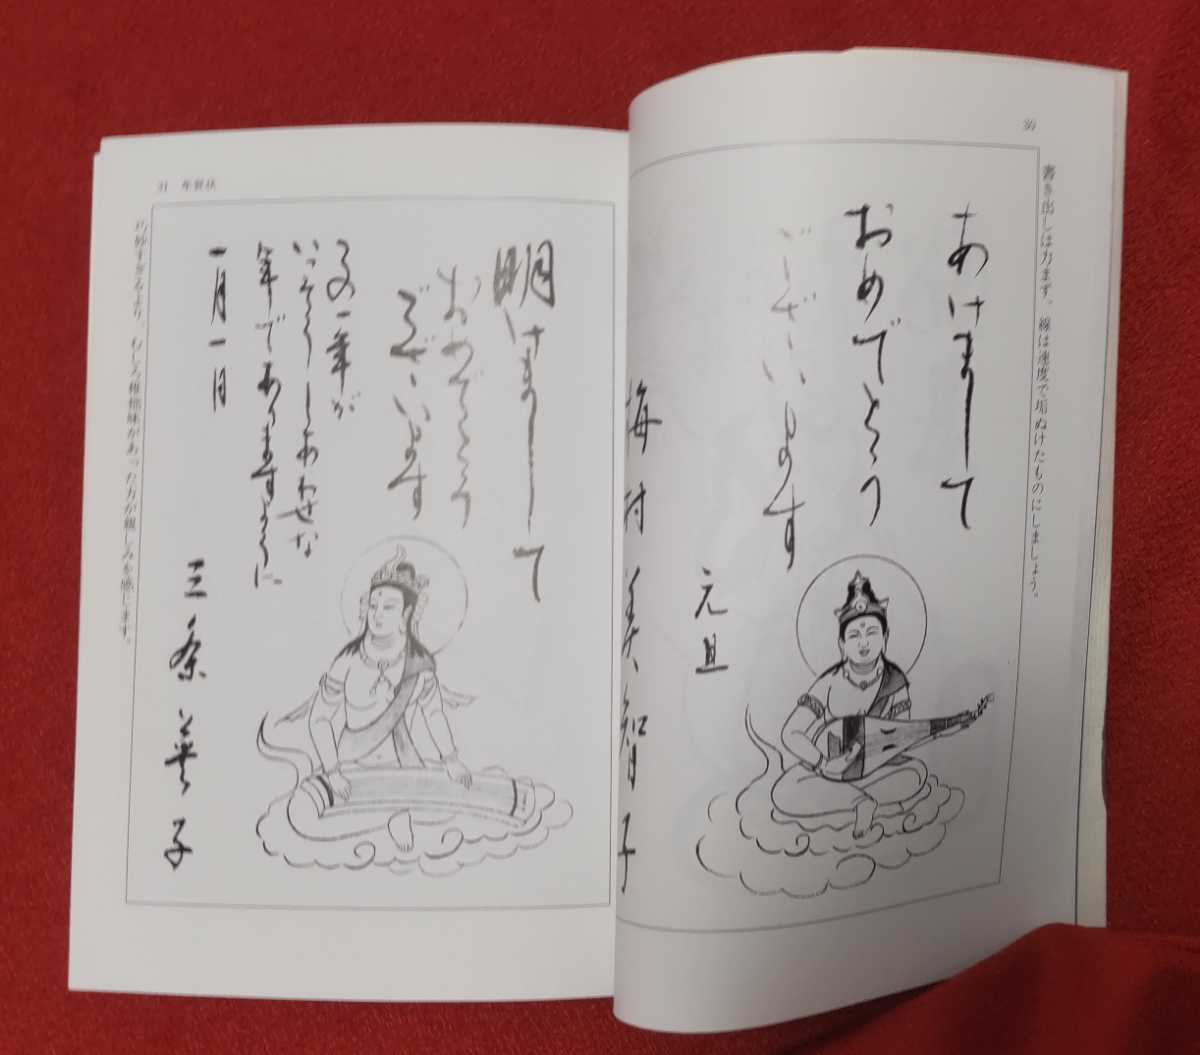 30
書き出しは力まず、線は速度で垢ぬけたものにしましょう。
あけまして
おめでとう
ございます
元旦
梅村美智子
31 年賀状
明けまして
おめでとう
ございます
この一年が
いっそうしあわせな
年でありますように
一月一日
三条英子
巧妙すぎるより、むしろ稚拙味があった方が親しみを感じます。